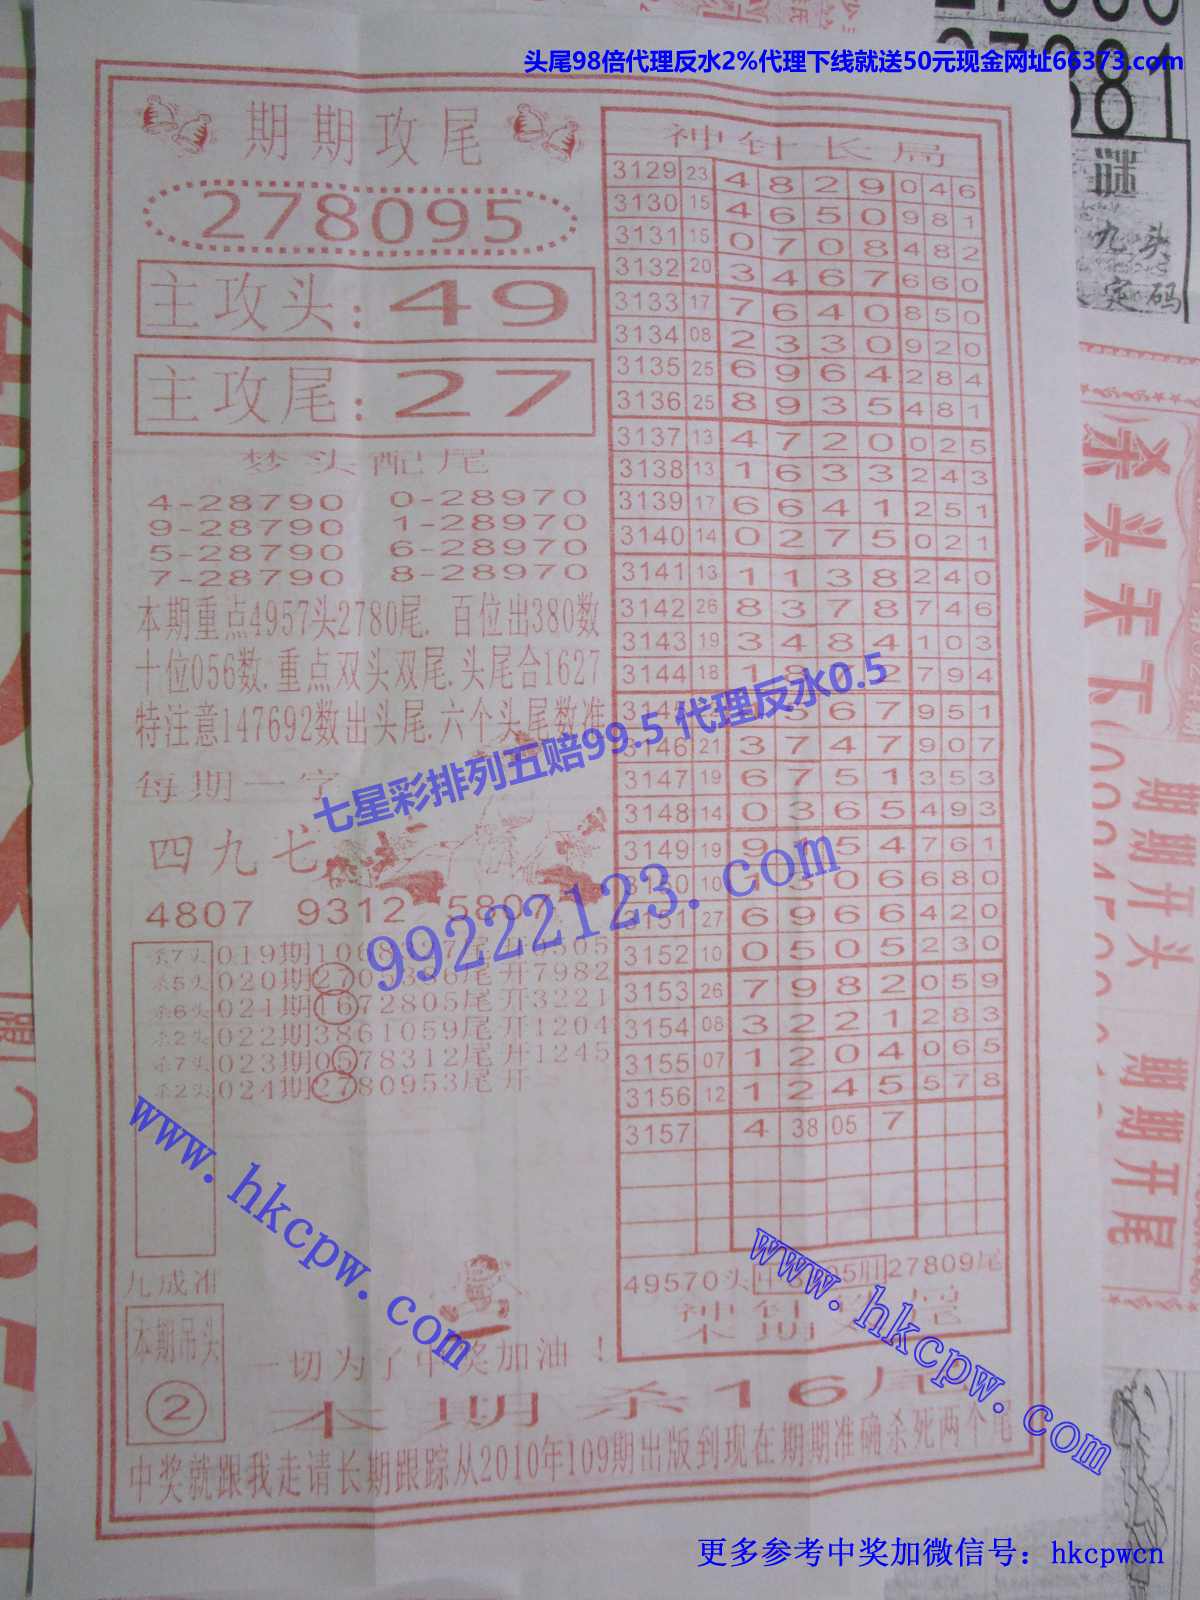 头尾98倍代理反水2%代理下线就送50元现金网址66373.com
期期攻尾
278095
主攻头:49
主攻尾:27
梦头配尾
4-28790 0-28970
9-28790 1-28970
5-28790 6-28970
7-28790 8-28970
本期重点4957头2780尾.百位出380数
十位056数.重点双头双尾.头尾合1627
特注意147692数出头尾.六个头尾数准
每期一字
四九七
4807 9312 5807
杀7头 019期
杀5头 020期 尾 开7982
杀6头 021期1672805尾 开3221
杀2头 022期3861059尾 开1204
杀7头 023期0578312尾 开1245
杀2头 024期2780953尾 开
九成准
本期吊头
②
一切为了中奖加油！
神针长局
3129 23 4 8 2 9 0 4 6
3130 15 4 6 5 0 9 8 1
3131 15 0 7 0 8 4 8 2
3132 20 3 4 6 7 6 6 0
3133 17 7 6 4 0 8 5 0
3134 08 2 3 3 0 9 2 0
3135 25 6 9 6 4 2 8 4
3136 25 8 9 3 5 4 8 1
3137 13 4 7 2 0 0 2 5
3138 13 1 6 3 3 2 4 3
3139 17 6 6 4 1 2 5 1
3140 14 0 2 7 5 0 2 1
3141 13 1 1 3 8 2 4 0
3142 26 8 3 7 8 7 4 6
3143 19 3 4 8 4 1 0 3
3144 18 1 8 7 2 7 9 4
5 6 7 9 5 1
3146 21 3 7 4 7 9 0 7
3147 19 6 7 5 1 3 5 3
3148 14 0 3 6 5 4 9 3
3149 19 9 1 5 4 7 6 1
3150 10 1 3 0 6 6 8 0
3151 27 6 9 6 6 4 2 0
3152 10 0 5 0 5 2 3 0
3153 26 7 9 8 2 0 5 9
3154 08 3 2 2 1 2 8 3
3155 07 1 2 0 4 0 6 5
3156 12 1 2 4 5 5 7 8
3157 4 38 05 7
49570头 27809尾
神针
本期
本期杀16尾
中奖就跟我走请长期跟踪从2010年109期出版到现在期期准确杀死两个尾
七星彩排列五赔99.5 代理反水0.5
99222123.com
www.hkcpw.com
www.hkcpw.com
681
谜
九头
定码
杀头天下
期期开头
期期开尾
更多参考中奖加微信号：hkcpwcn